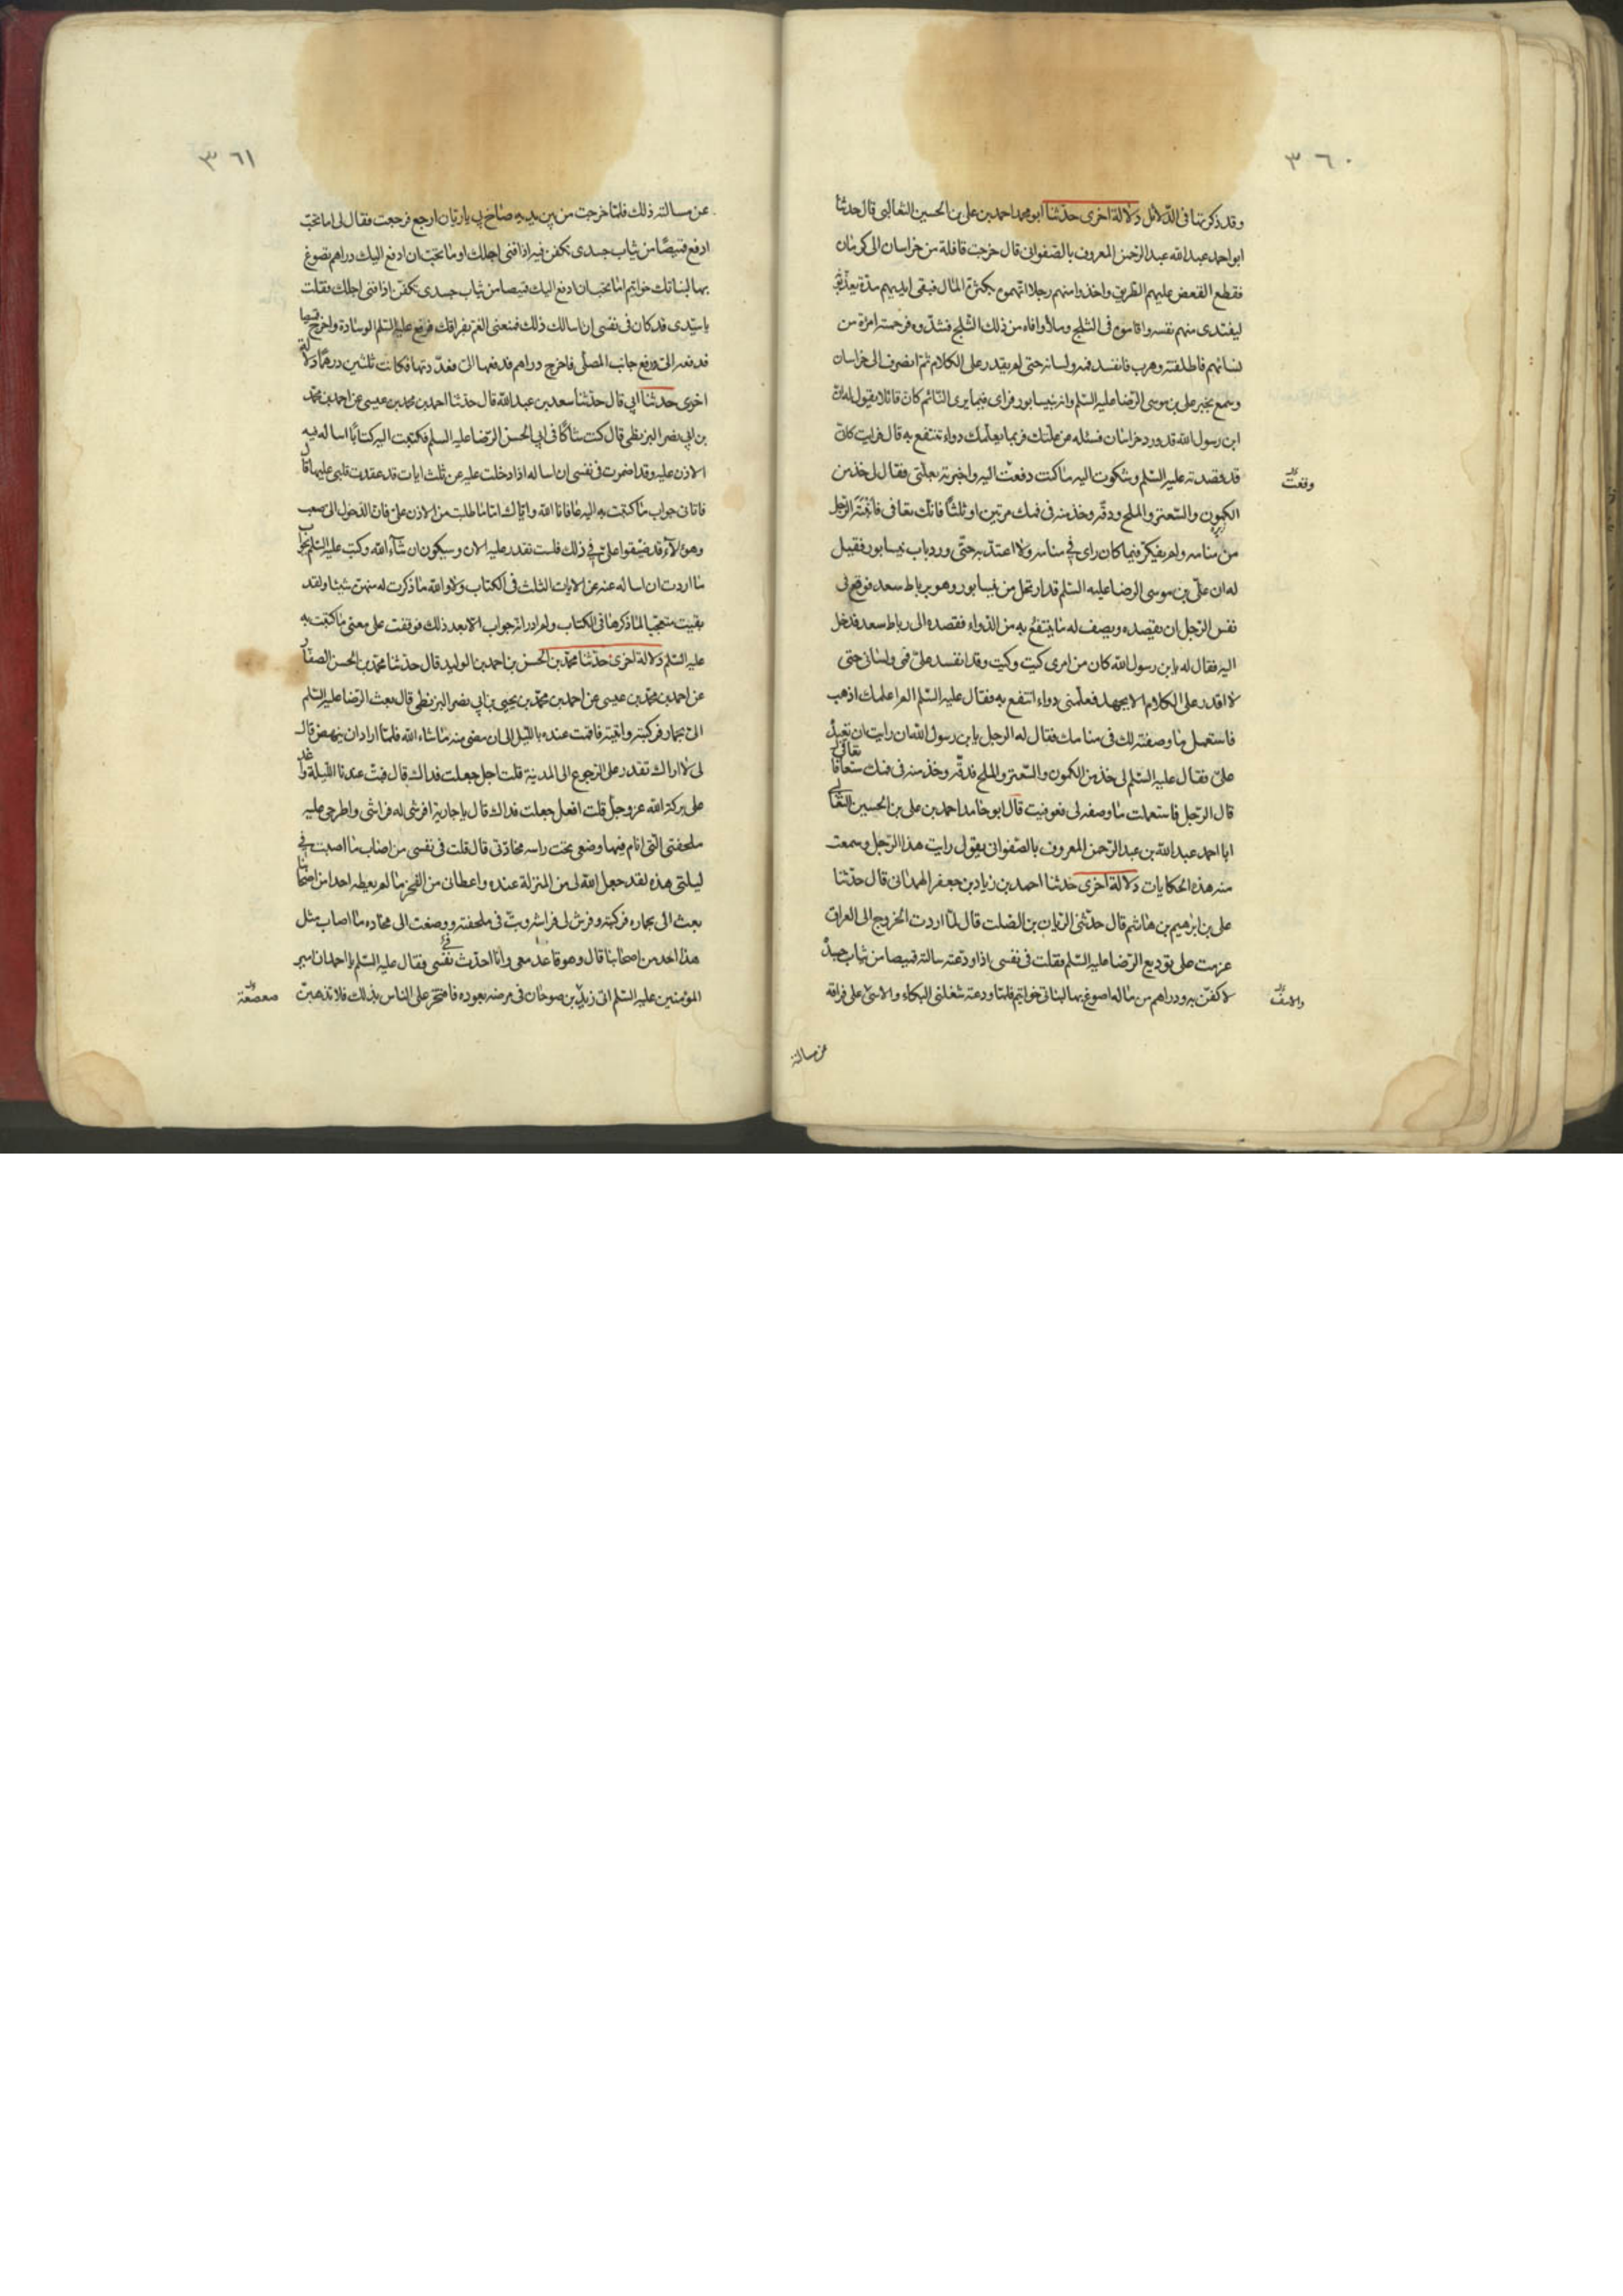 ٣٦٠
وقد ذكرتها فى الدلائل دلالة اخرى حدثنا ابو محمد احمد بن على بن الحسين الثعالبى قال حدثنا
ابو احمد عبد الله عبد الرحمن المعروف بالصفوانى قال خرجت قافلة من خراسان الى كرمان
فقطع القعص عليهم الطريق واخذوا منهم رجلا اتهموه بكثرة المال فبقى فى ايديهم مدة يعذبونه
ليفتدى منهم نفسه واقاموه فى الثلج وملأوا فاه من ذلك الثلج فشدوه فرحمته امرأة من
نسائهم فاطلقته وهرب فانفسد فمه ولسانه حتى لم يقدر على الكلام ثم انصرف الى خراسان
وسمع بخبر على بن موسى الرضا عليه السلم وانه بنيسابور فراى فيما يرى النائم كان قائلا يقول له ان
ابن رسول الله قد ورد خراسان فسئله عن علتك فربما يعلمك دواء تنتفع به قال فرايت كانى
قد قصدته عليه السلم وشكوت اليه ما كنت دفعت اليه واخبرته بعلتى فقال لى خذ من
وقعت
الكمون والسعتر والملح ودقه وخذ منه فى فمك مرتين او ثلثا فانك تعافى فانتبه الرجل
من منامه ولم يفكر فيما كان راى فى منامه ولا اعتد به حتى ورد باب نيسابور فقيل
له ان على بن موسى الرضا عليه السلم قد ارتحل من نيسابور وهو برباط سعد فوقع فى
نفس الرجل ان يقصده ويصف له ما ينتفع به من الدواء فقصده الى رباط سعد فدخل
اليه فقال له يا بن رسول الله كان من امرى كيت وكيت وقد انفسد على فمى ولسانى حتى
لا اقدر على الكلام الا بجهد فعلمنى دواء انتفع به فقال عليه السلم الم اعلمك اذهب
فاستعمل ما وصفته لك فى منامك فقال له الرجل يا بن رسول الله ان رايت ان تعيده
على فقال عليه السلم لى خذ من الكمون والسعتر والملح فدقه وخذ منه فى فمك ستعافا
قال الرجل فاستعملت ما وصفه لى فعوفيت قال ابو حامد احمد بن على بن الحسين الثعالبى
ابا احمد عبد الله بن عبد الرحمن المعروف بالصفوانى يقول رايت هذا الرجل وسمعت
منه هذه الحكايات دلالة اخرى حدثنا احمد بن زياد بن جعفر الهمدانى قال حدثنا
على بن ابرهيم بن هاشم قال حدثنى الريان بن الصلت قال لما اردت الخروج الى العراق
عزمت على توديع الرضا عليه السلم فقلت فى نفسى اذا ودعته سالته قميصا من ثياب جسده
لاكفن به ودراهم من ماله اصوغ بها لبناتى خواتيم فلما ودعته شغلنى البكاء والاسى على فراقه
والاسف
عن مسالته
٣٦١
عن مسالته ذلك فلما خرجت من بين يديه صاح بى يا ريان ارجع فرجعت فقال لى اما تحب
ادفع قميصا من ثياب جسدى تكفن فيه اذا فنى اجلك او ما تحب ان ادفع اليك دراهم تصوغ
بها لبناتك خواتيم اما تحب ان ادفع اليك قميصا من ثياب جسدى تكفن اذا فنى اجلك فقلت
يا سيدى قد كان فى نفسى ان اسالك ذلك فمنعنى الغم بفراقك فرفع عليه السلم الوسادة واخرج قميصا
فدفعه الى ورفع جانب المصلى فاخرج دراهم فدفعها الى فعددتها فكانت ثلثين درهما دلالة
اخرى حدثنا ابى قال حدثنا سعد بن عبد الله قال حدثنا احمد بن محمد بن عيسى عن احمد بن محمد
بن ابى نصر البزنطى قال كنت شاكا فى ابى الحسن الرضا عليه السلم فكتبت اليه كتابا اساله فيه
الاذن عليه وقد اضمرت فى نفسى ان اساله اذا دخلت عليه عن ثلث ايات قد عقدت قلبى عليها قال
فاتانى جواب ما كتبت به اليه عافانا الله واياك اما ما طلبت من الاذن على فان الدخول الى صعب
وهؤلاء قد ضيقوا على فى ذلك فلست تقدر عليه الان وسيكون ان شاء الله وكتب عليه السلم بجواب
ما اردت ان اساله عنه عن الايات الثلث فى الكتاب ولا والله ما ذكرت له منهن شيئا ولقد
بقيت متعجبا لما ذكرها فى الكتاب ولم ادر انه جواب الا بعد ذلك فوقفت على معنى ما كتبت به
عليه السلم دلالة اخرى حدثنا محمد بن الحسن بن احمد بن الوليد قال حدثنا محمد بن الحسن الصفار
عن احمد بن محمد بن عيسى عن احمد بن محمد بن يحيى بن ابى نصر البزنطى قال بعث الرضا عليه السلم
الى بحمار فركبته واتيته فاقمت عنده بالليل الى ان مضى منه ما شاء الله فلما اراد ان ينهض قال
لى لا اراك تقدر على الرجوع الى المدينة قلت اجل جعلت فداك قال فبت عندنا الليلة واغد
على بركة الله عز وجل قلت افعل جعلت فداك قال يا جارية افرشى له فراشى واطرحى عليه
ملحفتى التى انام فيها وضعى تحت راسه مخادتى قال قلت فى نفسى من اصاب ما اصبت فى
ليلتى هذه لقد جعل الله لى من المنزلة عنده واعطانى من الفخر ما لم يعطه احدا من اصحابنا
بعث الى بحماره فركبته وفرش لى فراشه وبت فى ملحفته ووضعت الى مخاده ما اصاب مثل
هذا احد من اصحابنا قال وهو قاعد معى وانا احدث فى نفسى فقال عليه السلم يا احمد ان امير
المؤمنين عليه السلم اتى زيد بن صوحان فى مرضه يعوده فافتخر على الناس بذلك فلا تذهبن
صعصعة